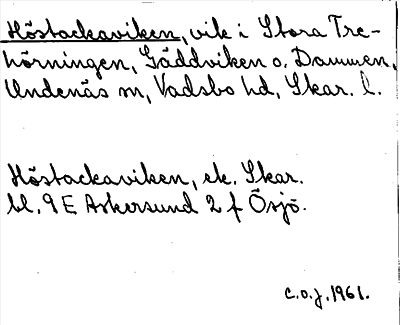 Höstackaviken, vik i Stora Tre-
hörningen, Gäddviken o. Dammen,
Undenäs sn, Vadsbo hd, Skar. l.
Höstackaviken, ek. Skar.
bl. 9 E Askersund 2 f Ösjö.
C.O.J. 1961.